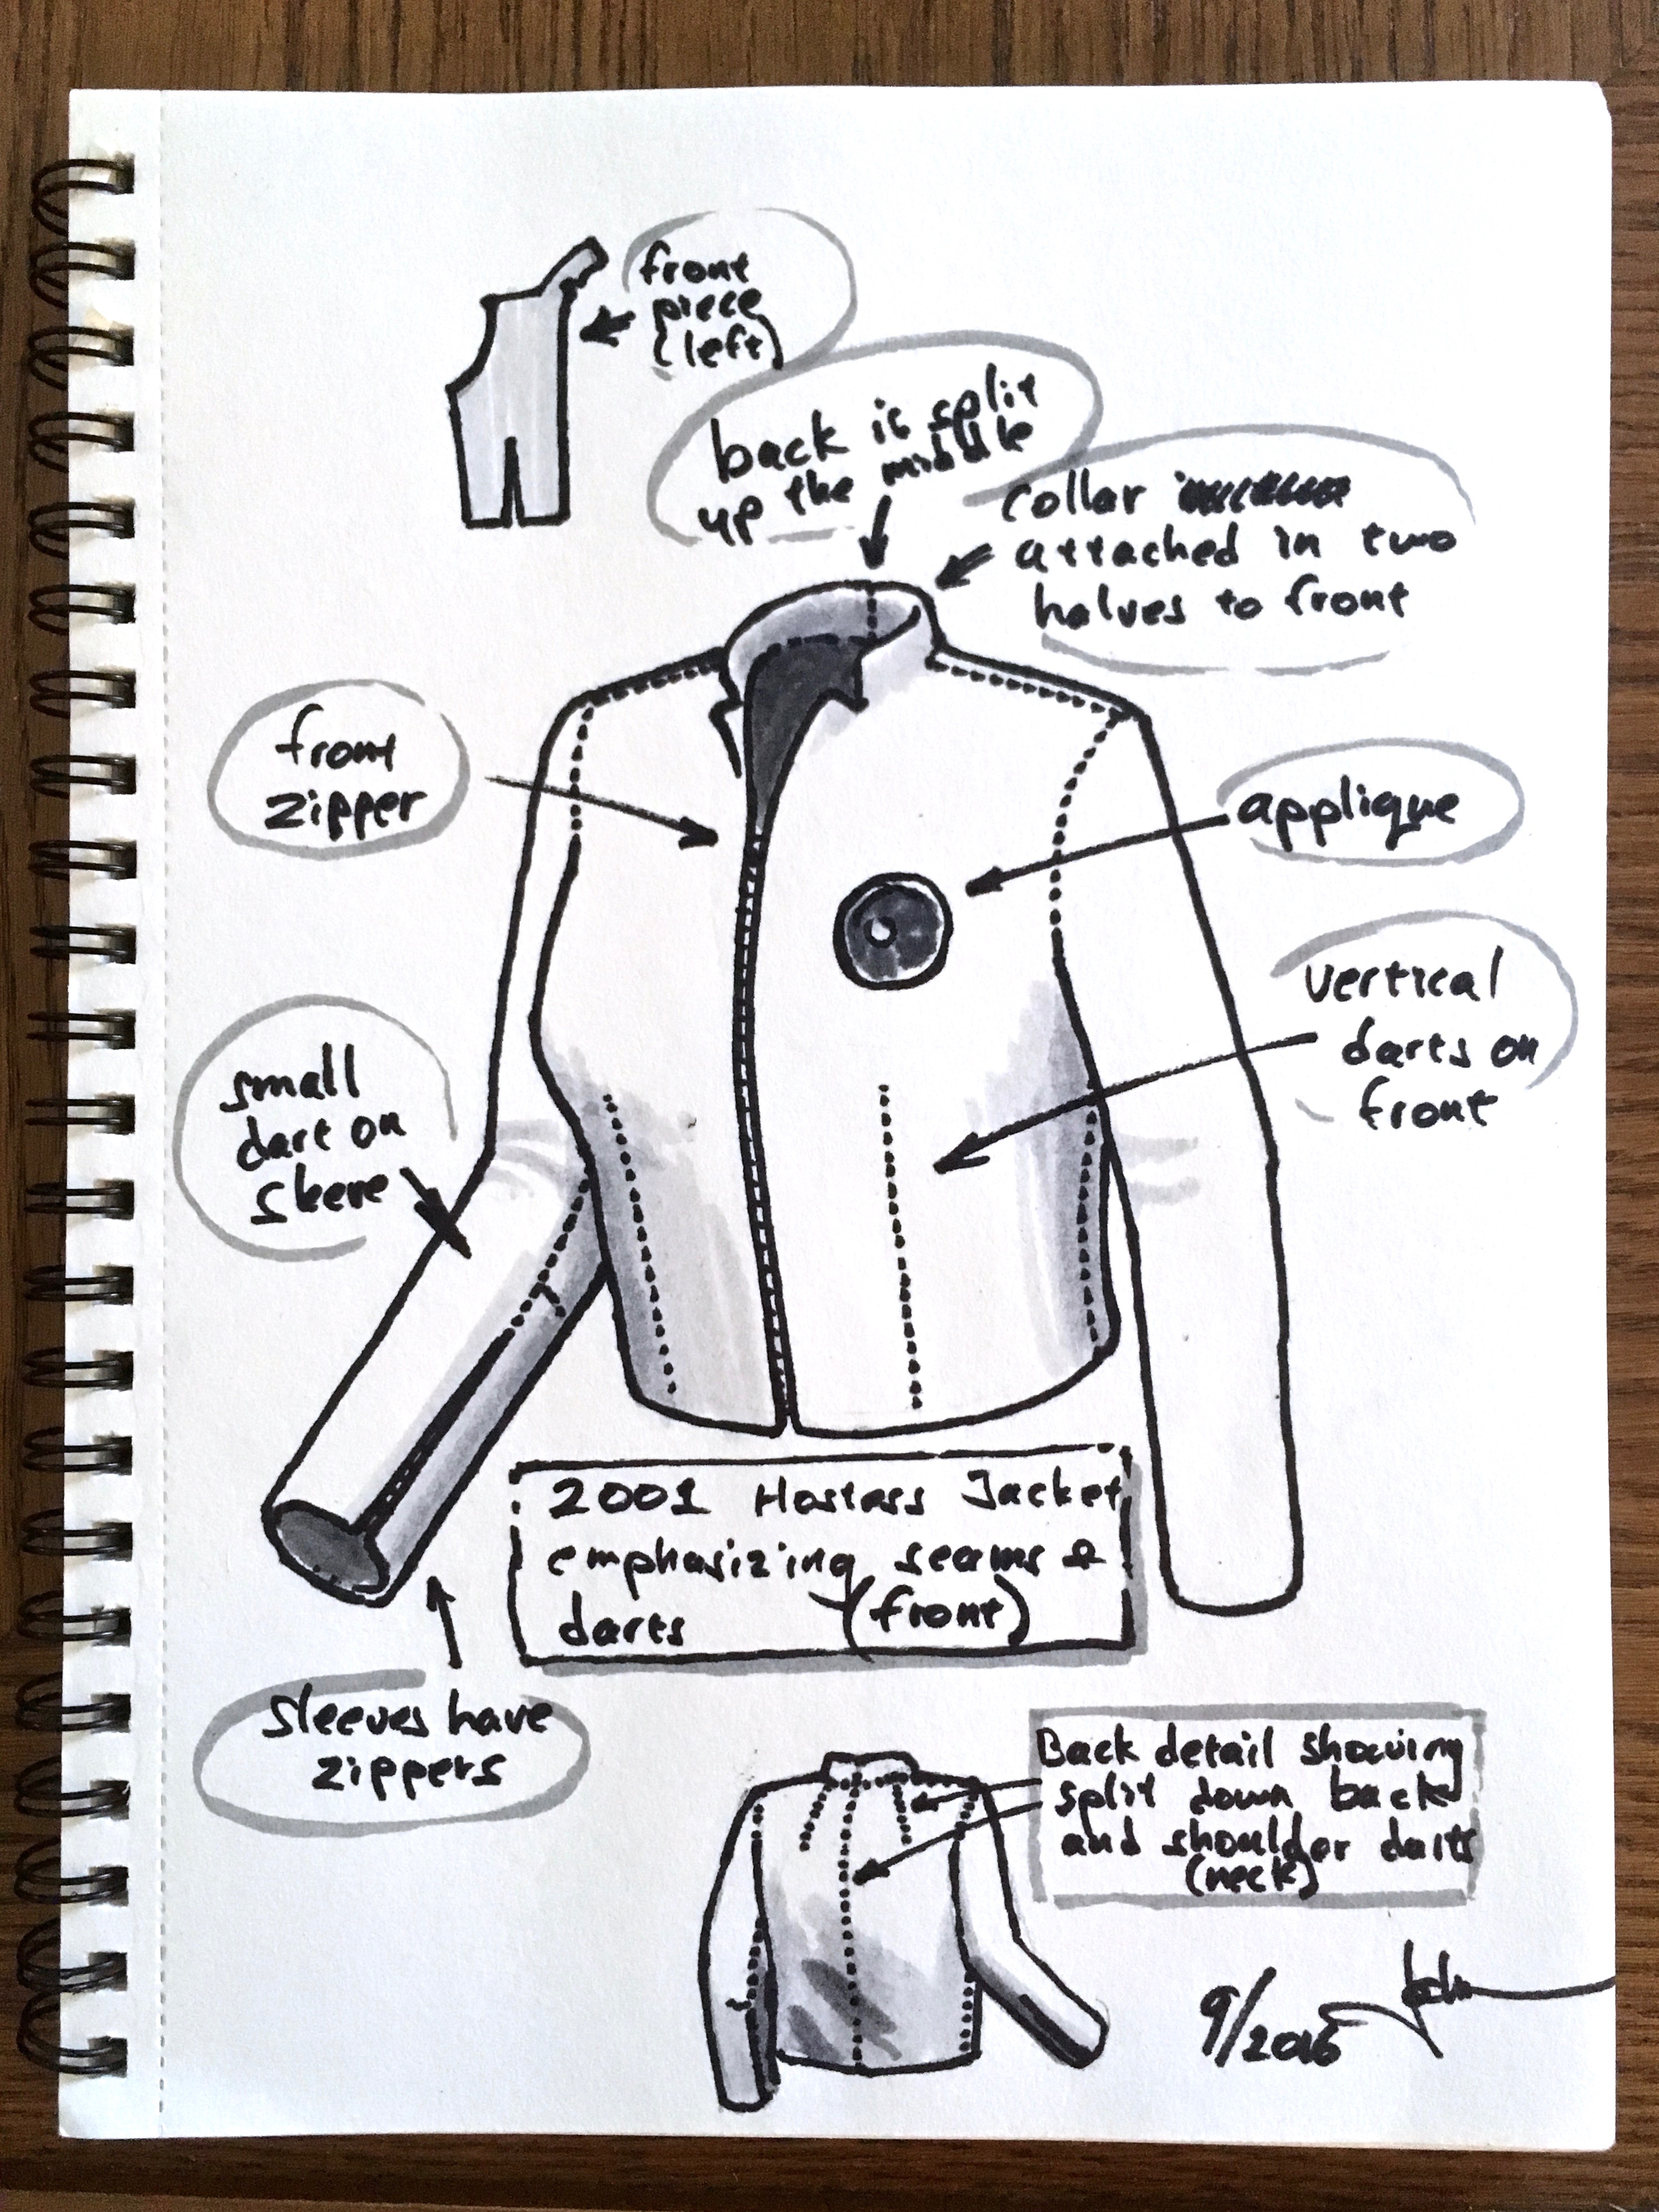 front
piece
(left)
back is split
up the middle
collar
attached in two
halves to front
front
zipper
applique
vertical
darts on
front
small
dart on
sleeve
2001 Hostess Jacket
emphasizing seams &
darts (front)
sleeves have
zippers
Back detail showing
split down back
and shoulder darts
(neck)
9/2016